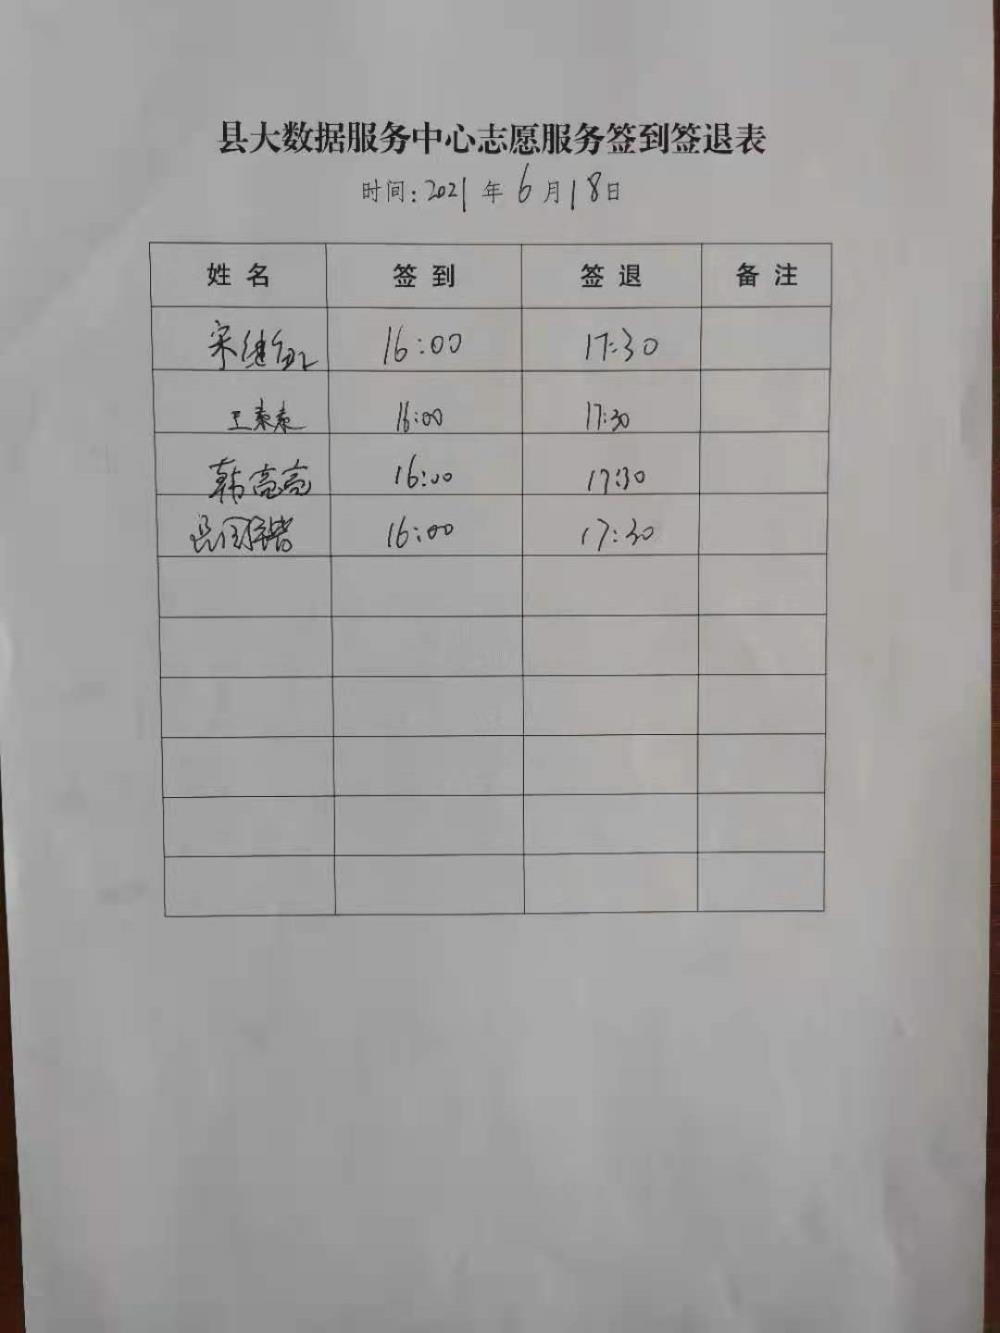 县大数据服务中心志愿服务签到签退表
时间:2021年6月18日
姓名 签到 签退 备注
16:00 17:30
王素素 16:00 17:30
韩亮亮 16:00 17:30
16:00 17:30